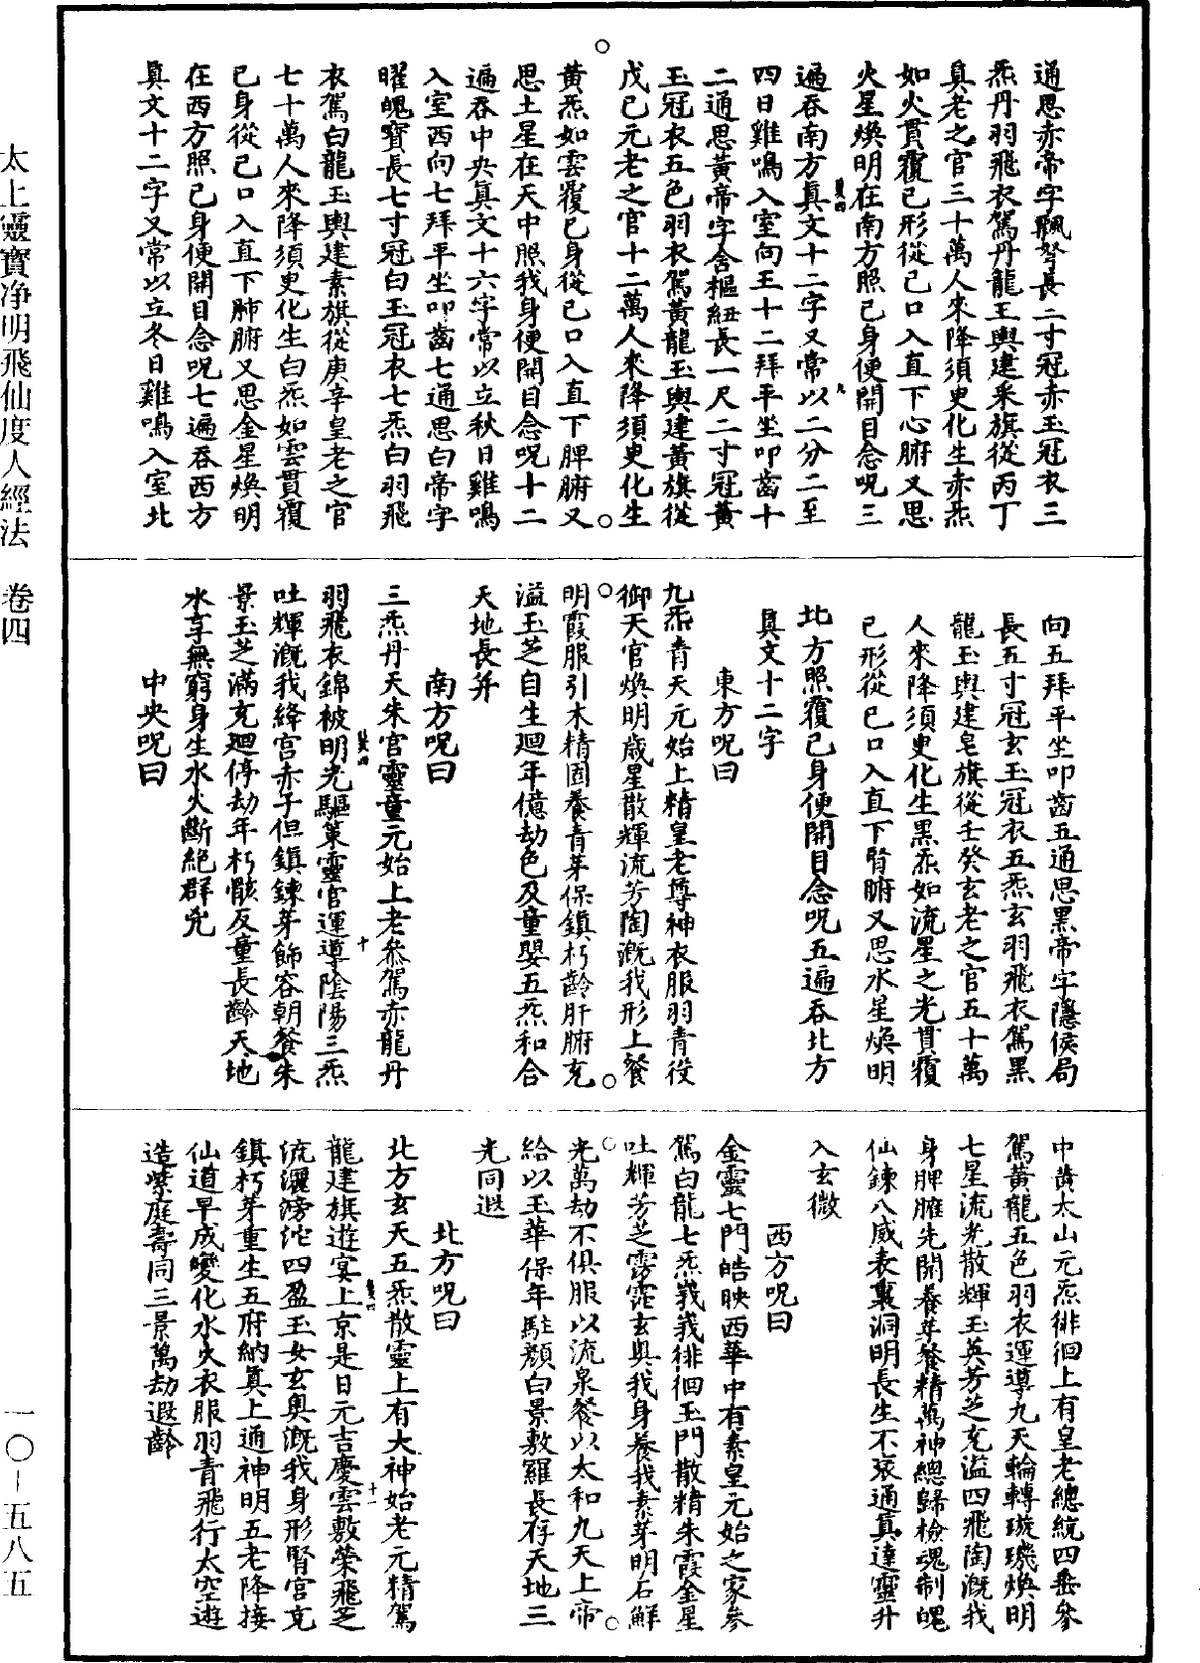 通思赤帝字飄弩長二寸冠赤玉冠衣三
炁丹羽飛衣駕丹龍玉輿建朱旗從丙丁
真老之官三十萬人來降須臾化生赤炁
如火貫覆己形從己口入直下心腑又思
火星煥明在南方照己身便開目念呪三
遍吞南方真文十二字又常以二分二至
四日雞鳴入室向王十二拜平坐叩齒十
二通思黃帝字含樞紐長一尺二寸冠黃
玉冠衣五色羽衣駕黃龍玉輿建黃旗從
戊己元老之官十二萬人來降須臾化生
黃炁如雲覆己身從己口入直下脾腑又
思土星在天中照我身便開目念呪十二
遍吞中央真文十六字常以立秋日雞鳴
入室西向七拜平坐叩齒七通思白帝字
曜魄寶長七寸冠白玉冠衣七炁白羽飛
衣駕白龍玉輿建素旗從庚辛皇老之官
七十萬人來降須臾化生白炁如雲貫覆
己身從己口入直下肺腑又思金星煥明
在西方照己身便開目念呪七遍吞西方
真文十二字又常以立冬日雞鳴入室北
向五拜平坐叩齒五通思黑帝字隱侯局
長五寸冠玄玉冠衣五炁玄羽飛衣駕黑
龍玉輿建皂旗從壬癸玄老之官五十萬
人來降須臾化生黑炁如流星之光貫覆
己形從己口入直下腎腑又思水星煥明
北方照覆己身便開目念呪五遍吞北方
真文十二字
東方呪曰
九炁青天元始上精皇老尊神衣服羽青役
御天官煥明歲星散輝流芳陶溉我形上餐
明霞服引木精固養青芽保鎮朽齡肝腑充
溢玉芝自生迴年億劫色及童嬰五炁和合
天地長并
南方呪曰
三炁丹天朱宮靈童元始上老叅駕赤龍丹
羽飛衣錦被明光驅策靈官運導陰陽三炁
吐輝溉我絳宮赤子但鎮鍊芽飾容朝餐朱
景玉芝滿充迴停劫年朽骸反童長齡天地
水享無窮身生水火斷絕群兇
中央呪曰
中黃太山元炁徘徊上有皇老總統四垂叅
駕黃龍五色羽衣運導九天輪轉璇璣煥明
七星流光散輝玉英芳芝充溢四飛陶溉我
身脾臟先開養芽餐精萬神總歸檢魂制魄
仙鍊八威表裏洞明長生不衰通真達靈升
入玄微
西方呪曰
金靈七門皓映西華中有素皇元始之家叅
駕白龍七炁峩峩徘徊玉門散精朱霞金星
吐輝芳芝霶霑玄輿我身養我素芽明石鮮
光萬劫不俱服以流泉餐以太和九天上帝
給以玉華保年駐顏白景敷羅長存天地三
光同遐
北方呪曰
北方玄天五炁散靈上有大神始老元精駕
龍建旗遊宴上京是日元吉慶雲敷榮飛芝
流灑滂沱四盈玉女玄輿溉我身形腎宮充
鎮朽芽重生五府納真上通神明五老降接
仙道早成變化水火衣服羽青飛行太空遊
造紫庭壽同三景萬劫遐齡
太上靈寶淨明飛仙度人經法　卷四
一〇－五八五